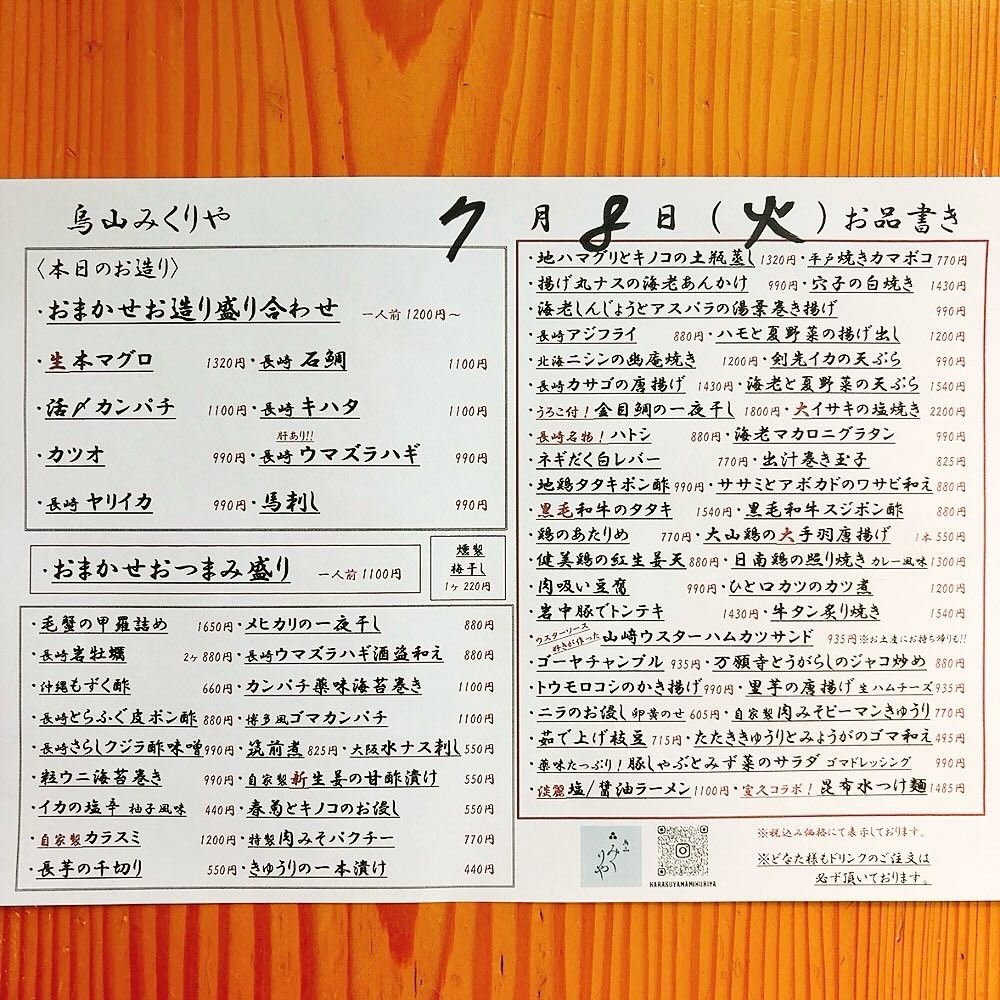 烏山みくりや
7月8日(火)お品書き
〈本日のお造り〉
・おまかせお造り盛り合わせ 一人前1200円~
・生本マグロ 1320円・長崎 石鯛 1100円
・活〆カンパチ 1100円・長崎 キハタ 1100円
肝あり!!
・カツオ 990円・長崎 ウマズラハギ 990円
・長崎 ヤリイカ 990円・馬刺し 990円
・おまかせおつまみ盛り 一人前1100円
燻製
梅干し
1ヶ 220円
・毛蟹の甲羅詰め 1650円・メヒカリの一夜干し 880円
・長崎岩牡蠣 2ヶ880円・長崎ウマズラハギ酒盗和え 880円
・沖縄もずく酢 660円・カンパチ薬味海苔巻き 1100円
・長崎とらふぐ皮ポン酢 880円・博多風ゴマカンパチ 1100円
・長崎さらしクジラ酢味噌990円・筑前煮 825円・大阪水ナス刺し550円
・粒ウニ海苔巻き 990円・自家製新生姜の甘酢漬け 550円
・イカの塩辛 柚子風味 440円・春菊とキノコのお浸し 550円
・自家製カラスミ 1200円・特製肉みそパクチー 770円
・長芋の千切り 550円・きゅうりの一本漬け 440円
・地ハマグリとキノコの土瓶蒸し 1320円・平戸焼きカマボコ 770円
・揚げ丸ナスの海老あんかけ 990円・穴子の白焼き 1430円
・海老しんじょうとアスパラの湯葉巻き揚げ 990円
・長崎アジフライ 880円・ハモと夏野菜の揚げ出し 1200円
・北海ニシンの幽庵焼き 1200円・剣先イカの天ぷら 990円
・長崎カサゴの唐揚げ 1430円・海老と夏野菜の天ぷら 1540円
・うろこ付!金目鯛の一夜干し 1800円・大イサキの塩焼き 2200円
・長崎名物!ハトシ 880円・海老マカロニグラタン 990円
・ネギだく白レバー 770円・出汁巻き玉子 825円
・地鶏タタキポン酢 990円・ササミとアボカドのワサビ和え 880円
・黒毛和牛のタタキ 1540円・黒毛和牛スジポン酢 880円
・鶏のあたりめ 770円・大山鶏の大手羽唐揚げ 1本 550円
・健美鶏の紅生姜天 880円・日南鶏の照り焼き カレー風味 1300円
・肉吸い豆腐 990円・ひと口カツのカツ煮 1200円
・岩中豚でトンテキ 1430円・牛タン炙り焼き 1430円
・ウスターソース好きが作った 山崎ウスターハムカツサンド 935円※お土産にお持ち帰りも!!
・ゴーヤチャンプル 935円・万願寺とうがらしのジャコ炒め 880円
・トウモロコシのかき揚げ990円・里芋の唐揚げ 生ハムチーズ935円
・ニラのお浸し 卵黄のせ 605円・自家製肉みそピーマンきゅうり770円
・茹で上げ枝豆 715円・たたききゅうりとみょうがのゴマ和え495円
・薬味たっぷり!豚しゃぶとみず菜のサラダ ゴマドレッシング 990円
・淡麗塩/醤油ラーメン1100円・宣久コラボ!昆布水つけ麺1485円
烏山
みくりや
KARASUYAMAMIKURIYA
※税込み価格にて表示しております。
※どなた様もドリンクのご注文は
必ず頂いております。